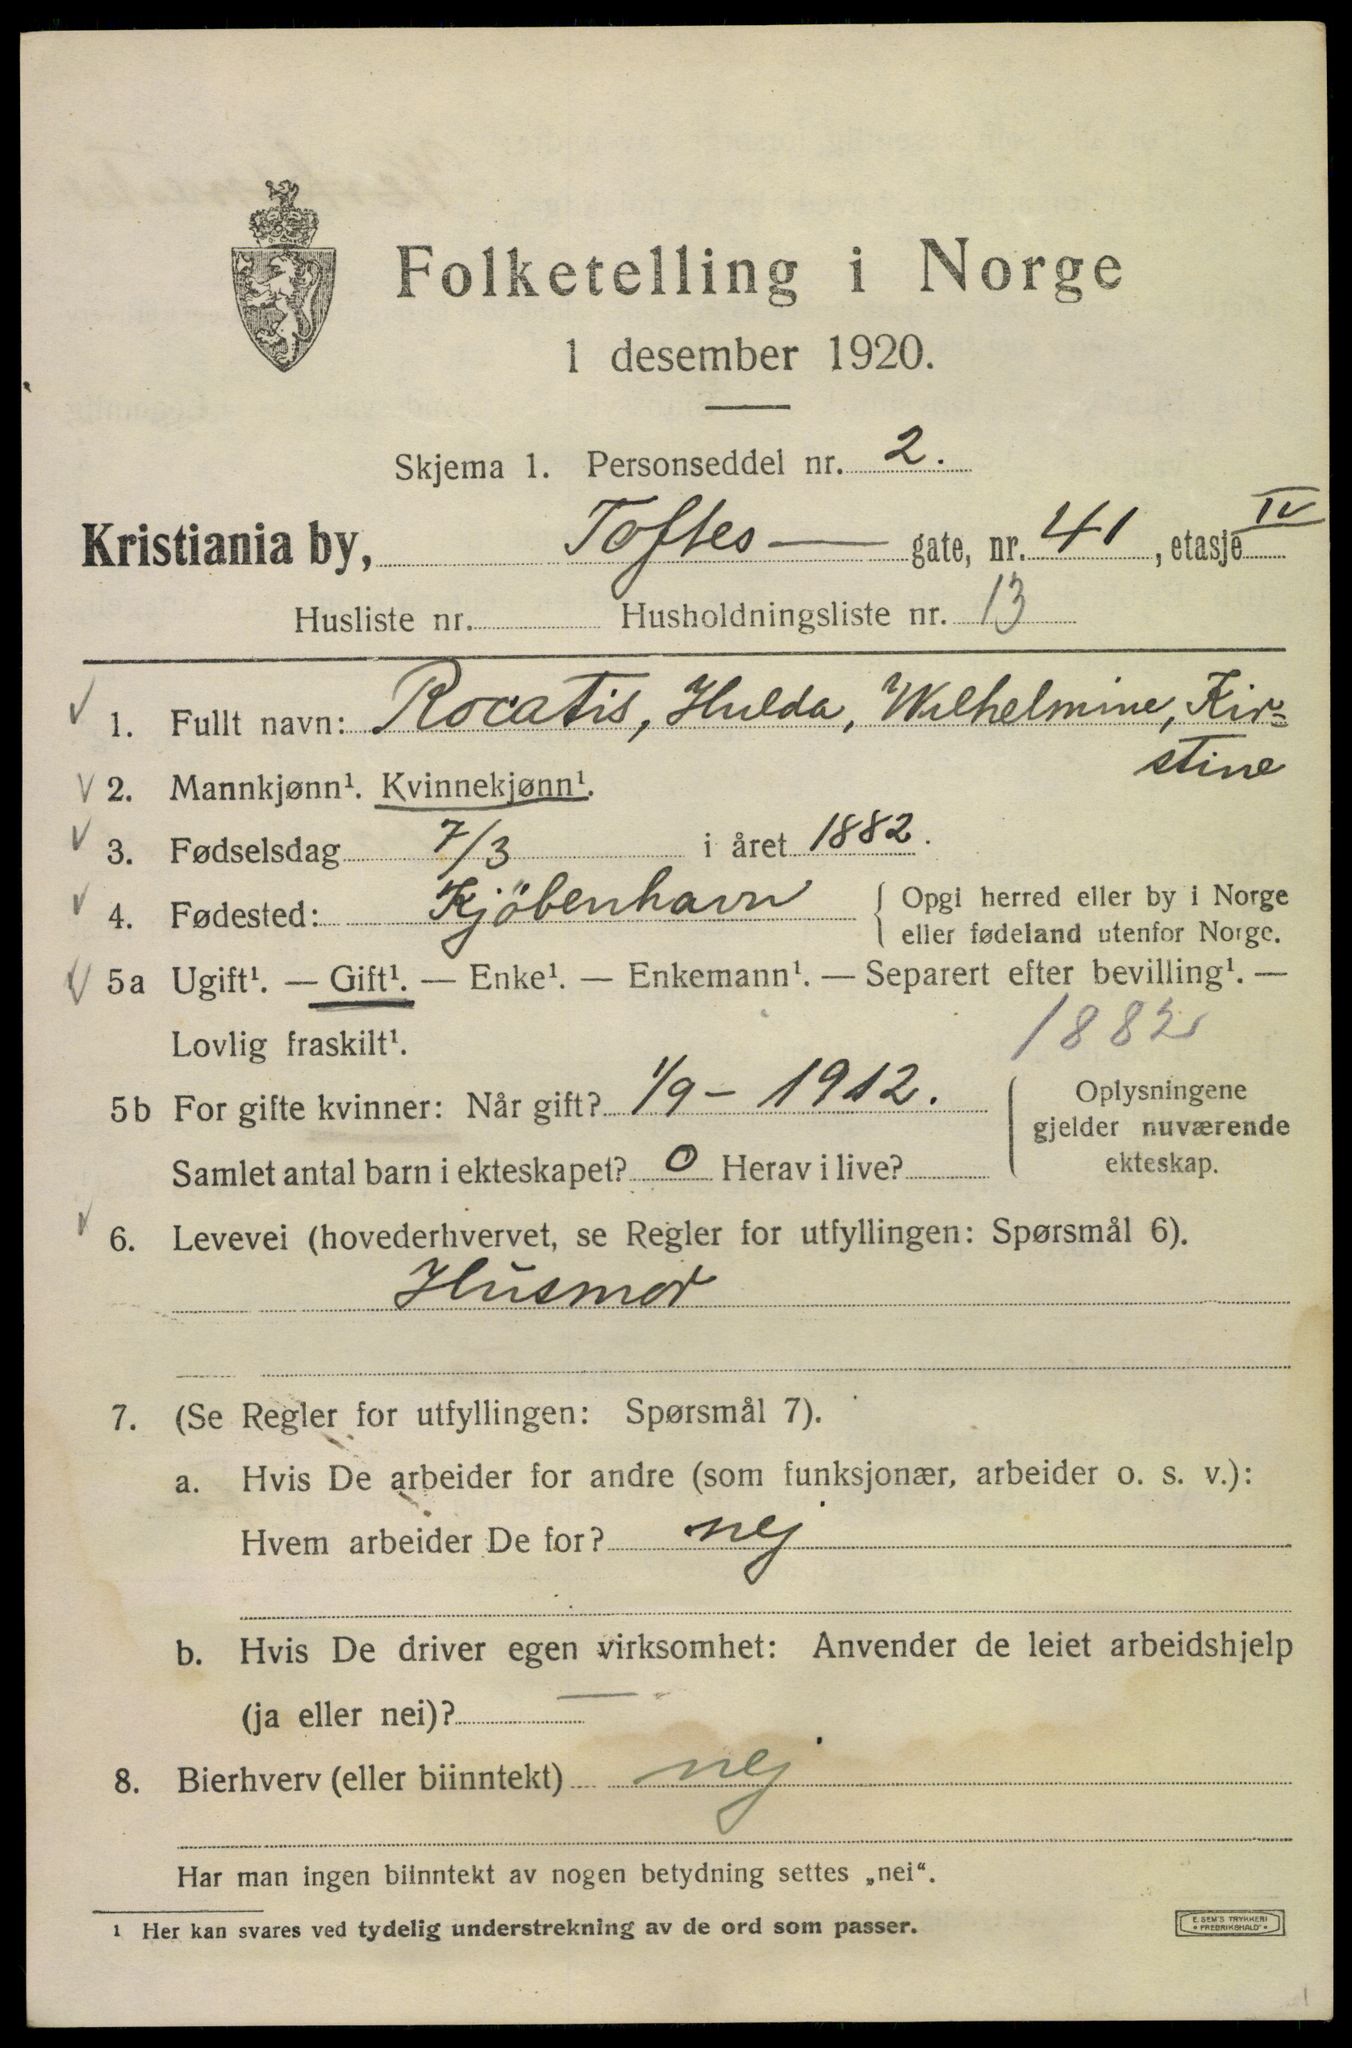 Folketelling i Norge
1 desember 1920.
Skjema 1. Personseddel nr. 2.
Kristiania by, Toftes — gate, nr. 41, etasje IV
Husliste nr. Husholdningsliste nr. 13
1. Fullt navn: Rocatis, Hulda, Wilhelmine, Kir-
stine
2. Mannkjønn¹. Kvinnekjønn¹.
3. Fødselsdag 7/3 i året 1882.
4. Fødested: Kjöbenhavn { Opgi herred eller by i Norge
eller fødeland utenfor Norge.
5a Ugift¹. — Gift¹. — Enke¹. — Enkemann¹. — Separert efter bevilling¹. —
Lovlig fraskilt¹. 1882
5b For gifte kvinner: Når gift? 1/9 – 1912. { Oplysningene
gjelder nuværende
ekteskap.
Samlet antal barn i ekteskapet? 0 Herav i live?
6. Levevei (hovederhvervet, se Regler for utfyllingen: Spørsmål 6).
Husmor
7. (Se Regler for utfyllingen: Spørsmål 7).
a. Hvis De arbeider for andre (som funksjonær, arbeider o. s. v.):
Hvem arbeider De for? nej
b. Hvis De driver egen virksomhet: Anvender de leiet arbeidshjelp
(ja eller nei)? —
8. Bierhverv (eller biinntekt) nej
Har man ingen biinntekt av nogen betydning settes „nei“.
¹ Her kan svares ved tydelig understrekning av de ord som passer.
E. SEM'S TRYKKERI
FREDRIKSHALD